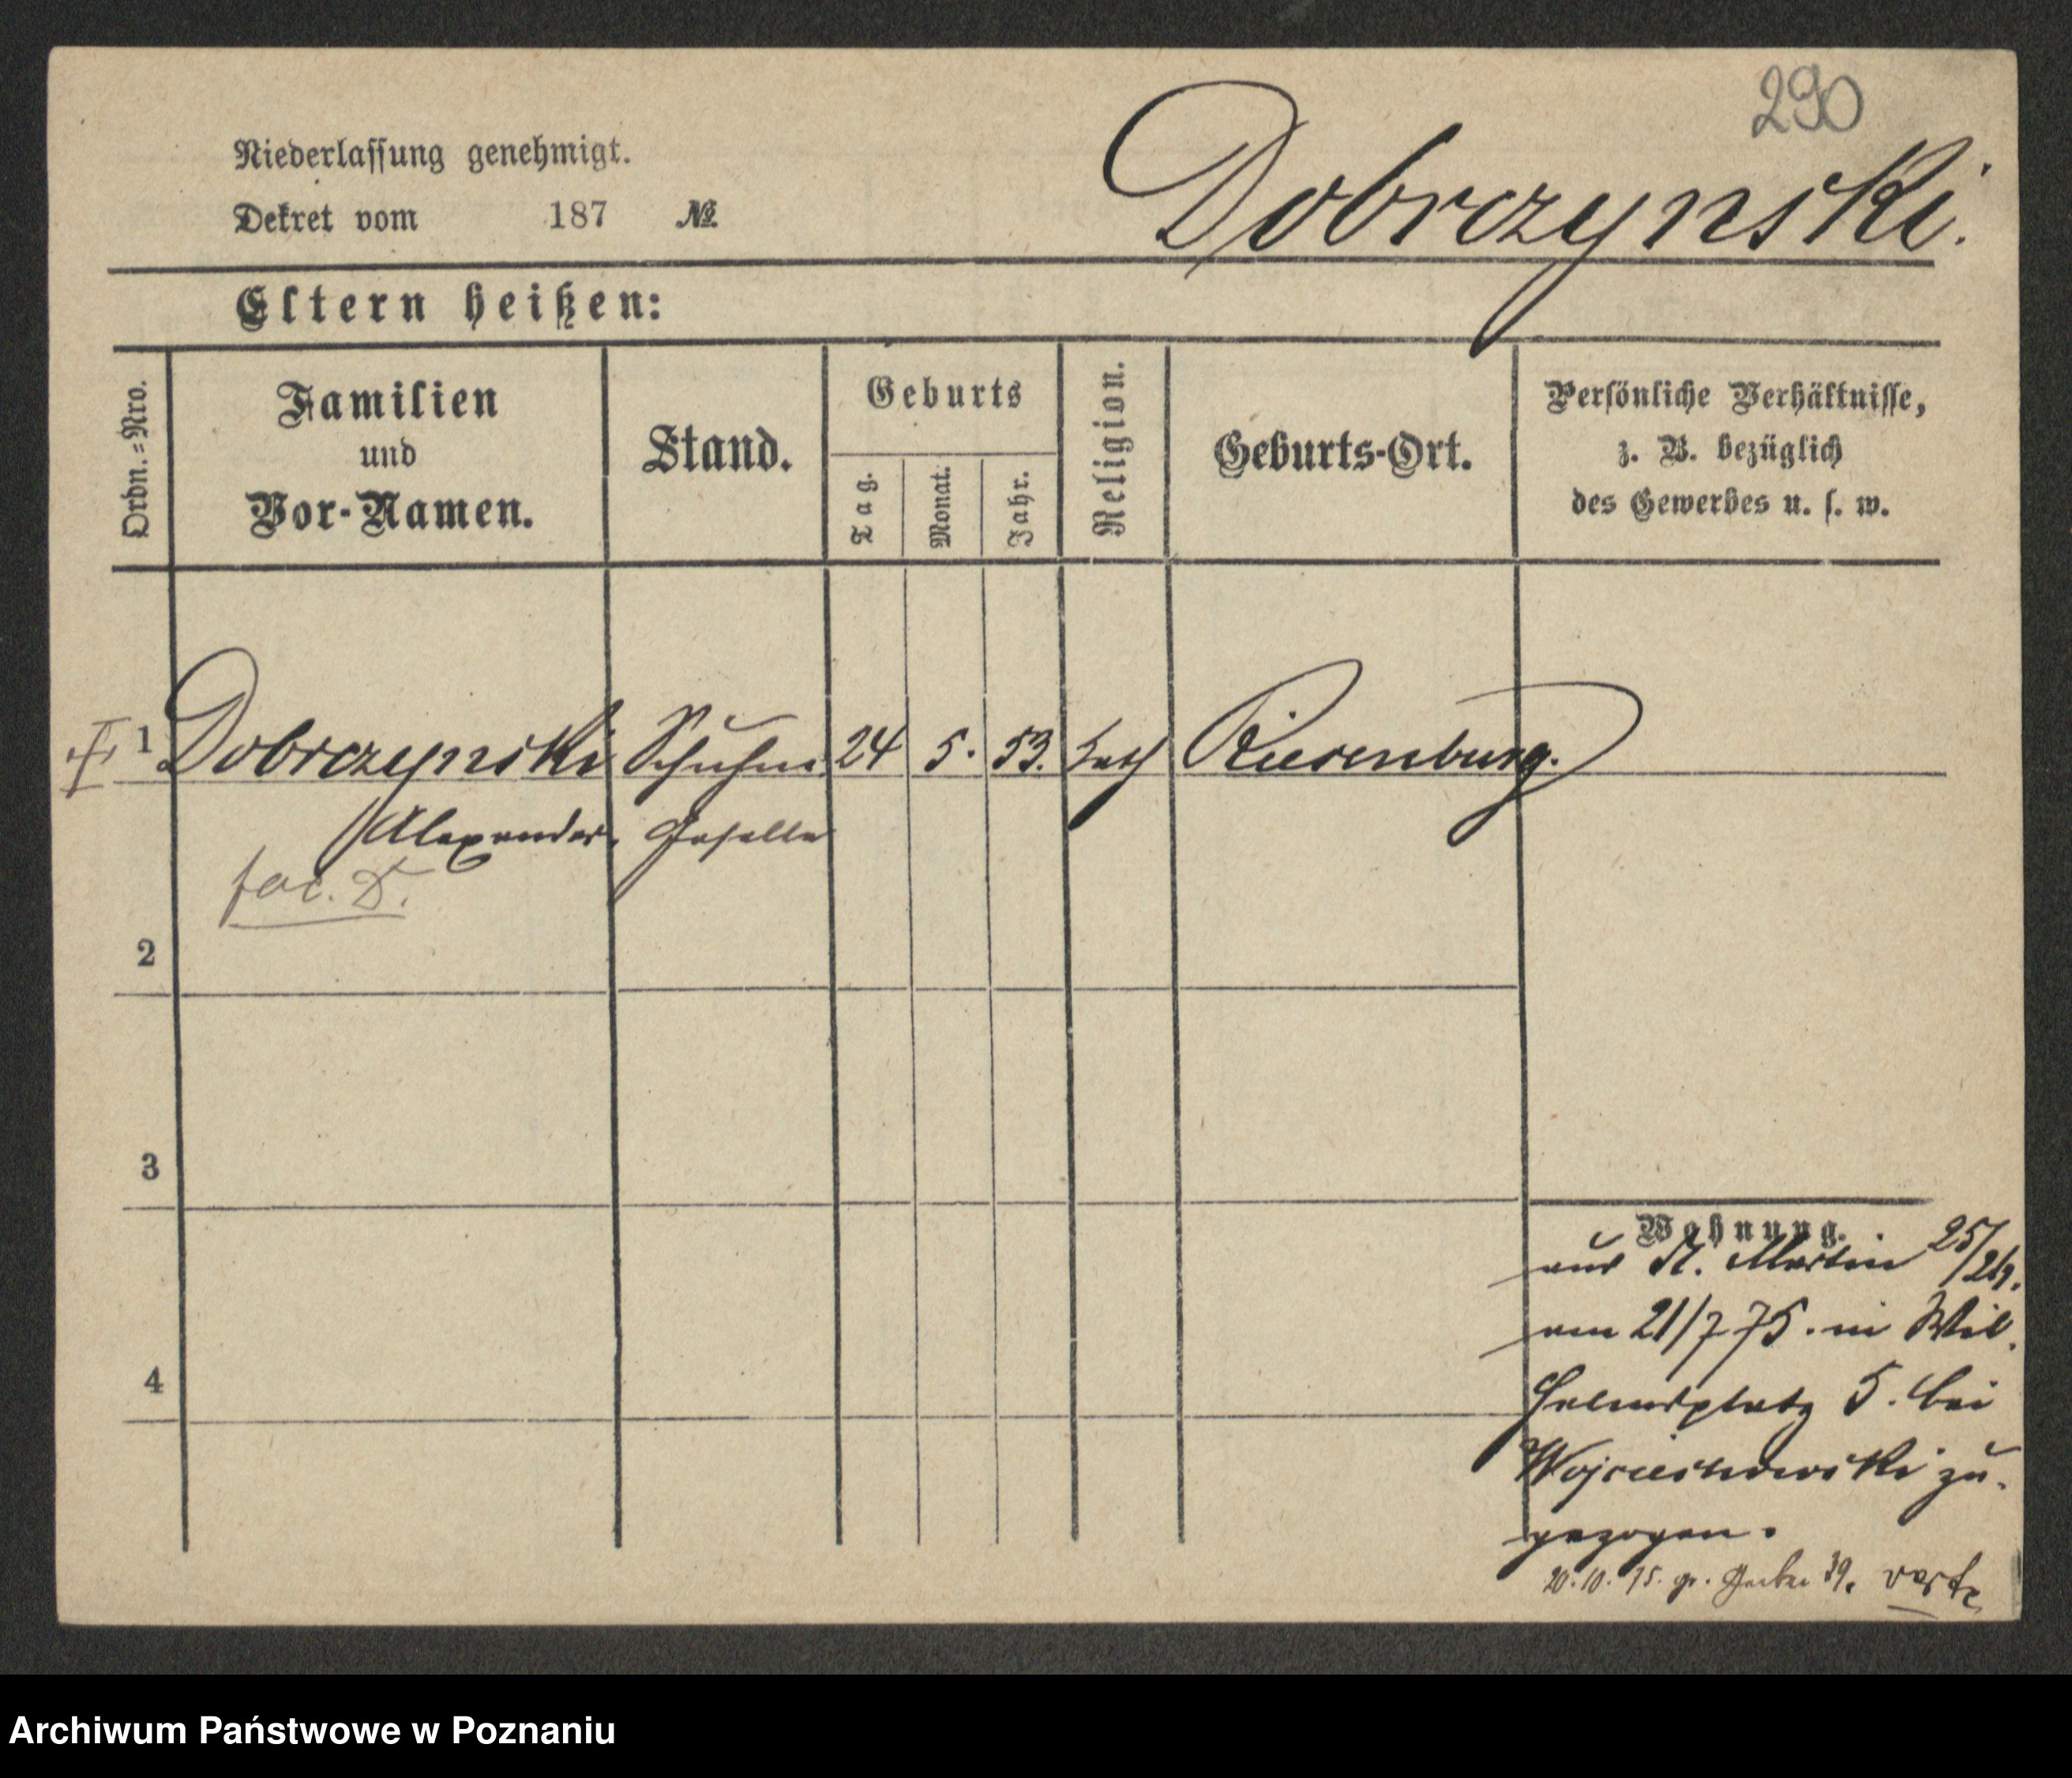 290
Niederlassung genehmigt.
Dobrczynski.
Dekret vom 187 №
Eltern heißen:
Ordn.=Nro.
Familien
und
Vor-Namen.
Stand.
Geburts
Tag.
Monat.
Jahr.
Religion.
Geburts-Ort.
Persönliche Verhältnisse,
z. B. bezüglich
des Gewerbes u. s. w.
1 Dobrczynski Schuhm. 24 5. 53. kath Riesenburg.
Alexander. Geselle
fac. D.
2
3
4
Wohnung.
aus St. Martin 25/26.
am 21/7 75. in Wil
helmsplatz 5. bei
Wojciechowski zu
gezogen.
20.10.75. gr. Gerber 39.
Archiwum Państwowe w Poznaniu